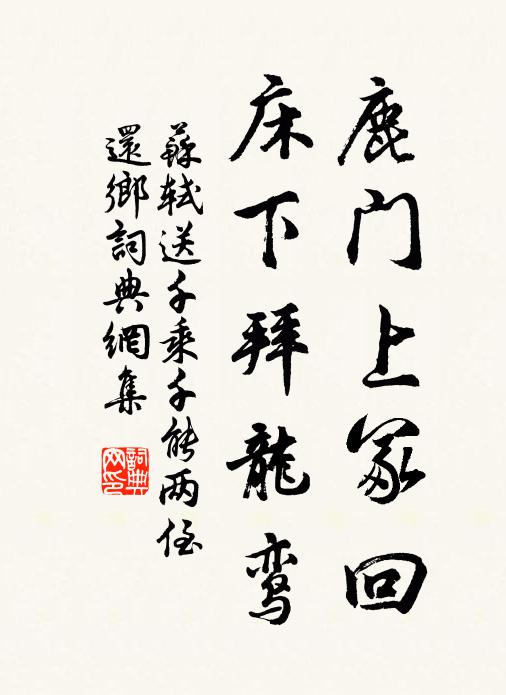 鹿门上冢回
床下拜龍鸾
蘇軾送千乘千能两侄
還鄉詞典網集
詞典网印